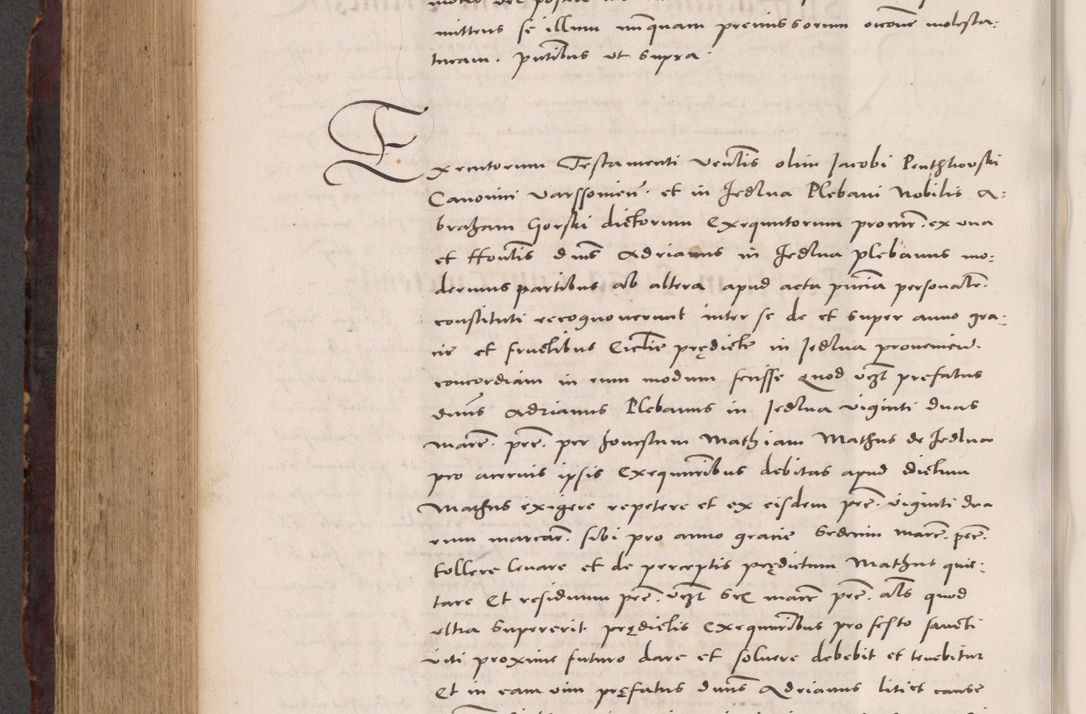 mittens se illum nunquam premissorum occōne molesta-
turam. pñtibus ut supra.
Executorum Testamenti veñlis olim Jacobi Penthkovski
Canonici varssovieñ. et in Jedlna Plebani Nobilis A-
braham Gorski dictorum Exequutorum procur̃. ex una
et Hoñlis dñus Adrianus in Jedlna plebanus mo-
dernus partibus ab altera apud acta pñcia personal̃r
constituti recognoverunt inter se de et super anno gra-
cie et fructibus Ecclẽ prędicte in Jedlna provenieñ.
concordiam in eum modum fecisse Quod vcz̃t prefatus
dñus Adrianus Plebanus in Jedlna viginti duas
marc̃. pec̃. per honestum Mathiam Mathus de Jedlna
pro acervis ipsis Exequutoribus debitas apud dictum
Mathus exigere repetere et ex eisdem pec̃. viginti dua
rum marcar̃. sibi pro anno gracie sedecim marc̃. pec̃.
tollere levare et de perceptis prędictum Mathus quit-
tare Et residuum pec̃. vcz̃t sex marc̃ pec̃. al̃s quod
ultra supererit prędictis Exequutoribus pro festo sancti
viti proxime futuro dare et solvere debebit et tenebitur
Et in eam vim pręfatus dñus Adrianus lites cause